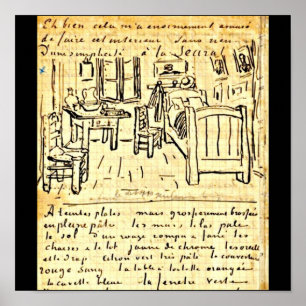 Eh bien cela m'a enormement amusé
de faire cet interieur sans rien
D'une simplicité à la Seurat
A teintes plates mais grossierement brossées
en pleine pâte les murs lilas pale
le sol d'un rouge rompu & fané les
chaises & le lit jaune de chrome les oreillers
et le drap citron vert très pâle la couverture
rouge sang la table à toilette orangée
la cuvette bleue la fenêtre verte